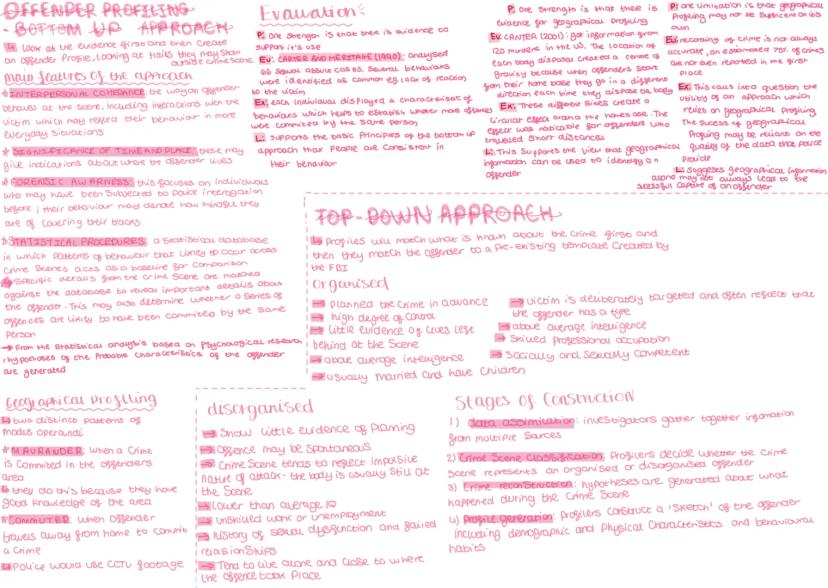 OFFENDER PROFILING
- BOTTOM UP APPROACH
↳ Look at the evidence first and then create
an offender Profile, looking at traits they may show
outside crime scene
main features of the approach
* INTERPERSONAL COHERANCE: the way an offender
behaves at the scene, including interactions with the
victim which may reflect their behaviour in more
everyday situations
* SIGNIFICANCE OF TIME AND PLACE: these may
give indications about where the offender lives
* FORENSIC AWARNESS: this focuses on individuals
who may have been subjected to police interrogation
before; their behaviour may denote how mindful they
are of covering their tracks
* STATISTICAL PROCEDURES: a statistical database
in which patterns of behaviour that likely to occur across
crime scenes acts as a baseline for comparison
→ Specific details from the crime scene are matched
against the database to reveal important details about
the offender. This may also determine whether a series of
offences are likely to have been committed by the same
person
→ From the statistical analysis based on psychological research
, hypotheses of the probable characteristics of the offender
are generated
Evaluation:
P: one strength is that there is evidence to
support it's use
Ev: CARTER AND HERITAGE (1990): analysed
66 sexual assault cases. Several behaviours
were identified as common eg. lack of reaction
to the victim
Ex: each individual displayed a characteristic of
behaviours which helps to establish whether more offences
were committed by the same person
L: supports the basic principles of the bottom up
approach that people are consistent in
their behaviour
P: one strength is that there is
evidence for geographical profiling
Ev: CANTER (2001): got information from
120 murders in the US. The location of
each body disposal created a centre of
gravity because when offenders start
from their home base they go in a different
direction each time they dispose the body
Ex: These different sites create a
circular effect around the home base. The
effect was noticable for offenders who
travelled short distances
L: This supports the view that geographical
information can be used to identify an
offender
P: one limitation is that geographical
profiling may not be sufficient on its
own
Ev: recording of crime is not always
accurate, an estimated 75% of crimes
are not even reported in the first
place
Ex: This calls into question the
utility of an approach which
relies on geographical profiling
The success of geographical
profiling may be reliant on the
quality of the data that police
provide
L: Suggests geographical information
alone may not always lead to the
successful capture of an offender
TOP-DOWN APPROACH
↳ Profiles will match what is known about the crime first and
then they match the offender to a pre-existing template created by
the FBI
organised
→ planned the crime in advance
→ high degree of control
→ little evidence of clues left
behind at the scene
→ above average intelligence
→ usually married and have children
→ victim is deliberately targeted and often reflect that
the offender has a type
→ above average intelligence
→ skilled professional occupation
→ Socially and sexually competent
Geographical Profilling
↳ two distinct patterns of
modus operandi
* MAURANDER: when a crime
is commited in the offenders
area
↳ they do this because they have
good knowledge of the area
* COMMUTER: when offender
travels away from home to commit
a crime
↳ police would use CCTV footage
disorganised
→ Show little evidence of planning
→ Offence may be spontaneous
→ Crime scene tends to reflect impulsive
nature of attack - the body is usually still at
the scene
→ lower than average IQ
→ unskilled work or unemployment
→ history of sexual dysfunction and failed
relasionships
→ Tend to live alone and close to where
the offence took place
Stages of Construction
1) data assimication: investigators gather together infomation
from multiple sources
2) Crime Scene Classification: Profilers decide whether the crime
scene represents an organised or disorganised offender
3) Crime reconstruction: hypotheses are generated about what
happened during the crime scene
4) profile generation: profilers construct a 'sketch' of the offender
including demographic and physical characteristics and behavioural
habits